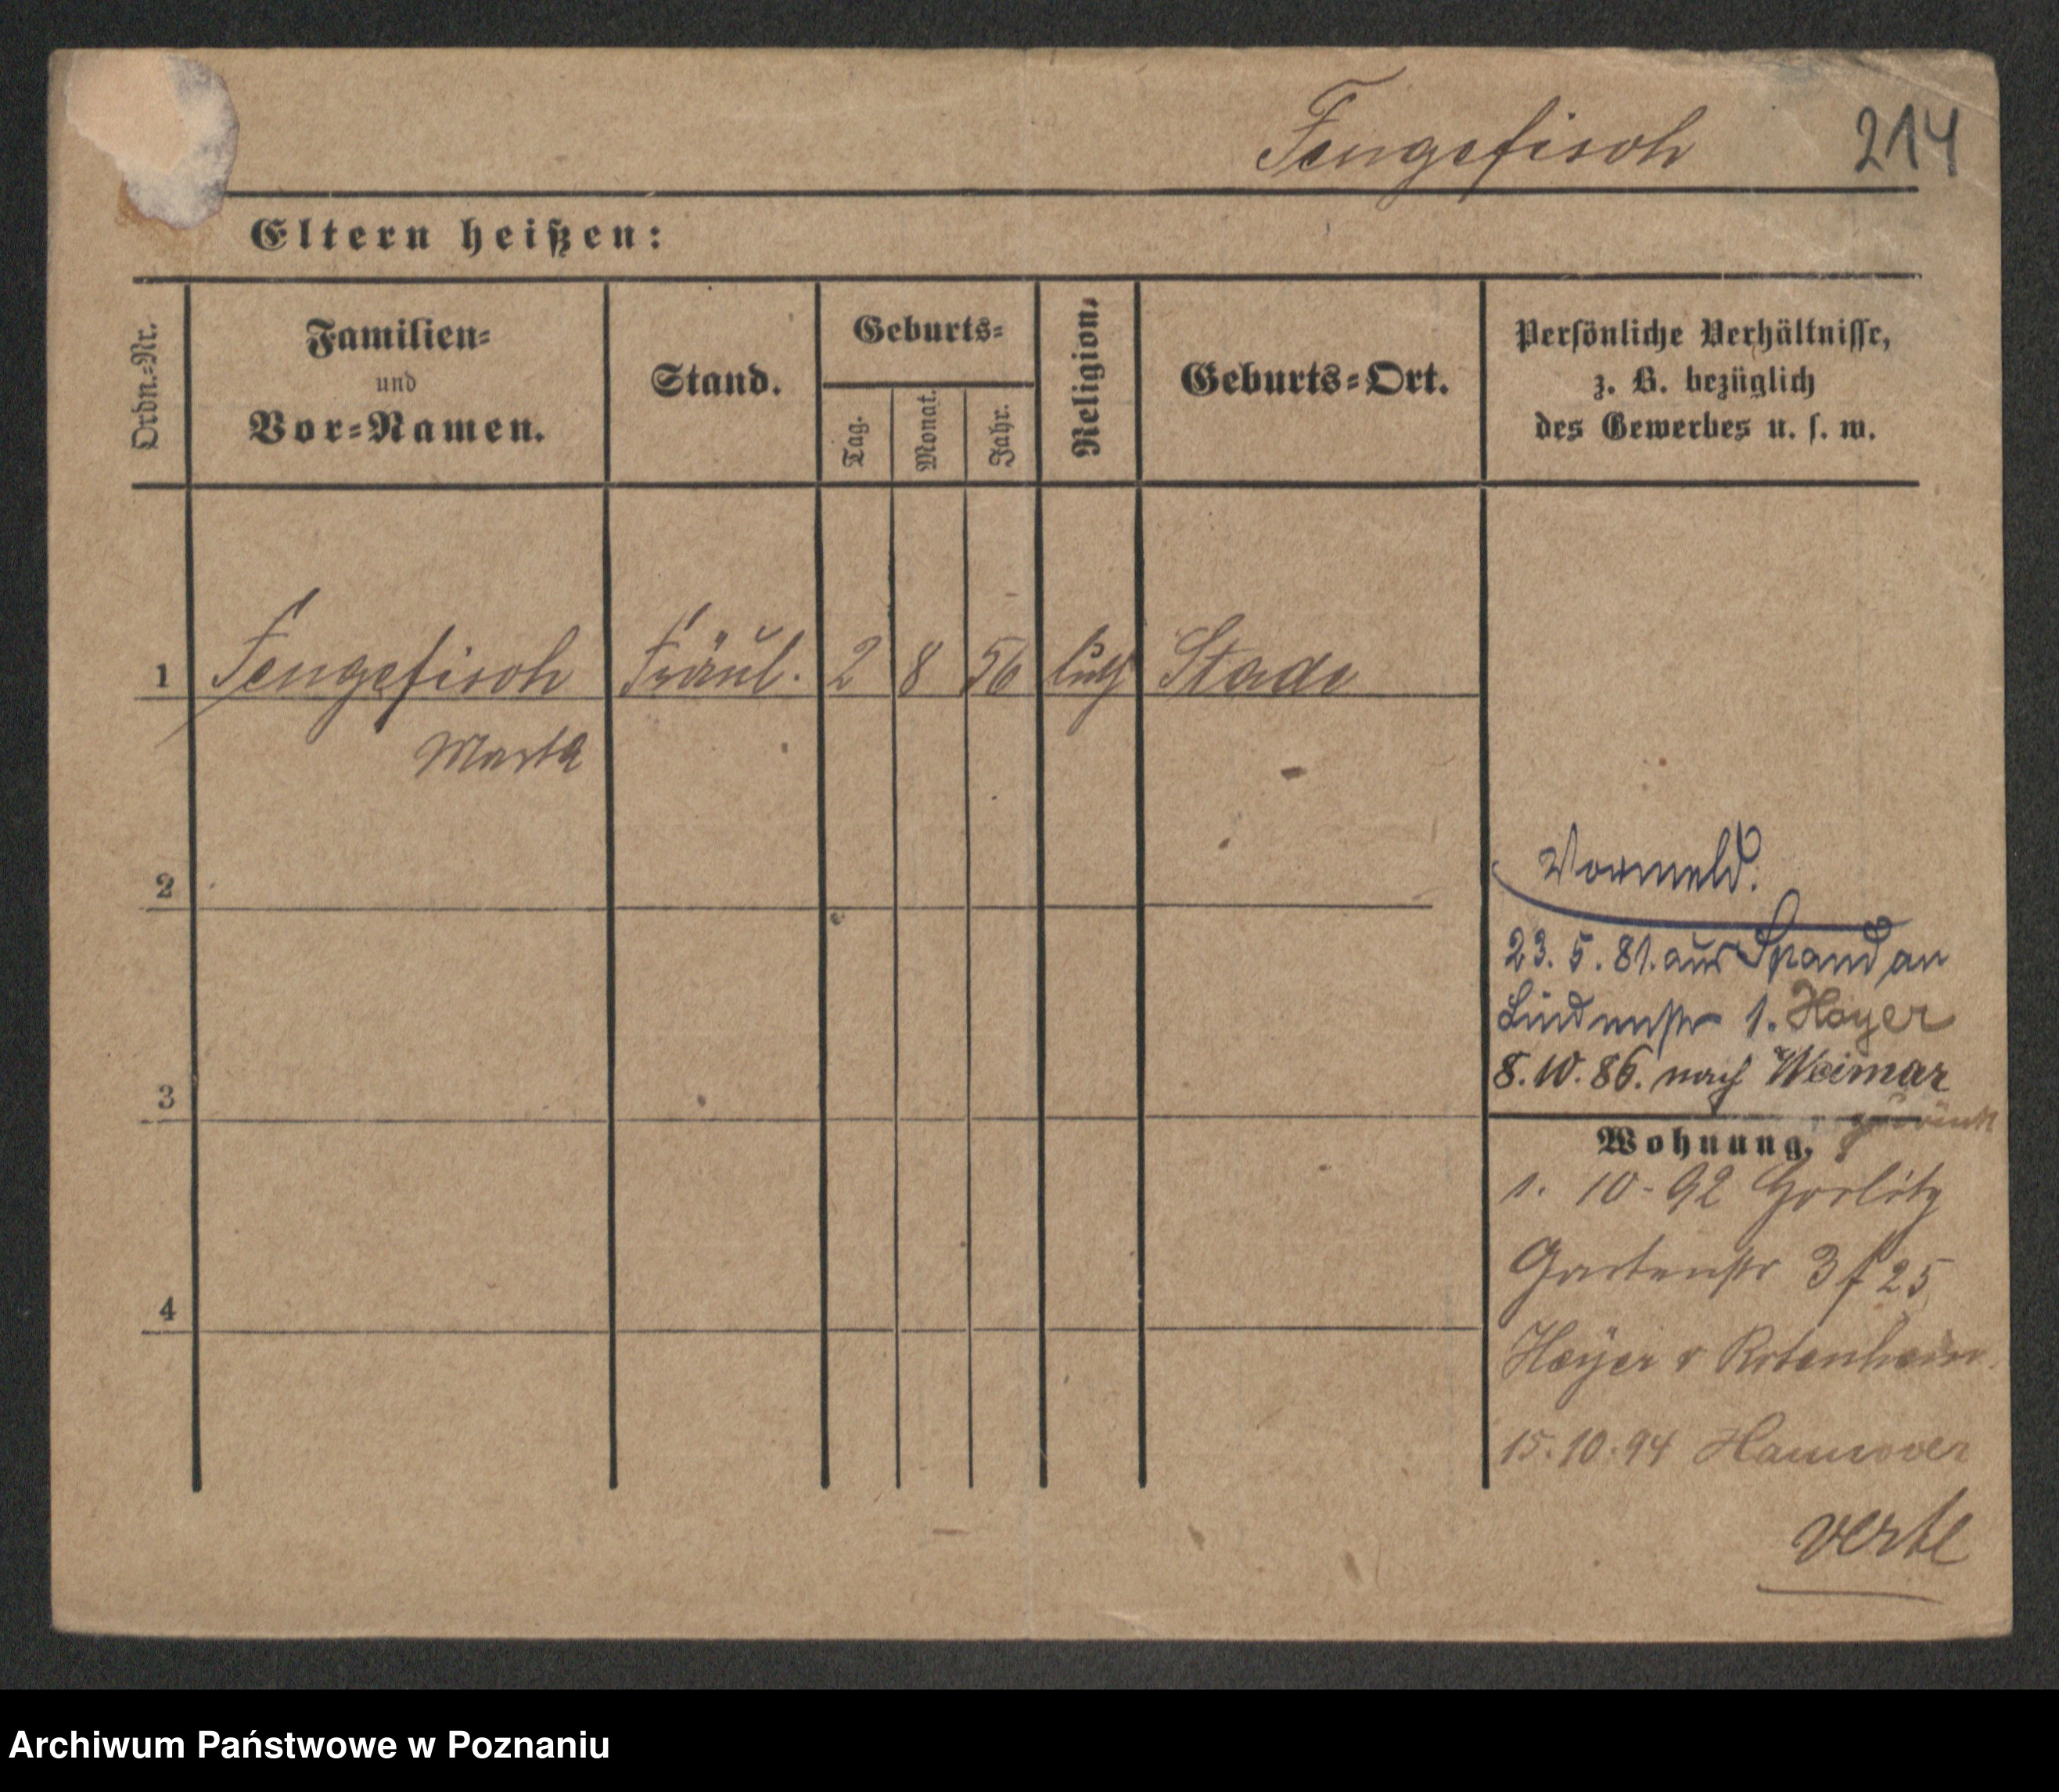 Fengefisch 214
Eltern heißen:
Ordn.-Nr. Familien- und Vor-Namen. Stand. Geburts- Tag. Monat. Jahr. Religion. Geburts-Ort. Persönliche Verhältnisse, z. B. bezüglich des Gewerbes u. s. w.
1 Fengefisch Fräul. 2 8 56 luth Stade
Marta
2
Vormeld.
23. 5. 81. aus an
Lindenstr 1. Hoyer
8. 10. 86. nach Weimar
3
zurück
Wohnung.
1. 10 - 92 Görlitz
Gartenstr 3 f 25
4
Heyer v Rotenhain
15. 10. 94 Hannover
verte
Archiwum Państwowe w Poznaniu